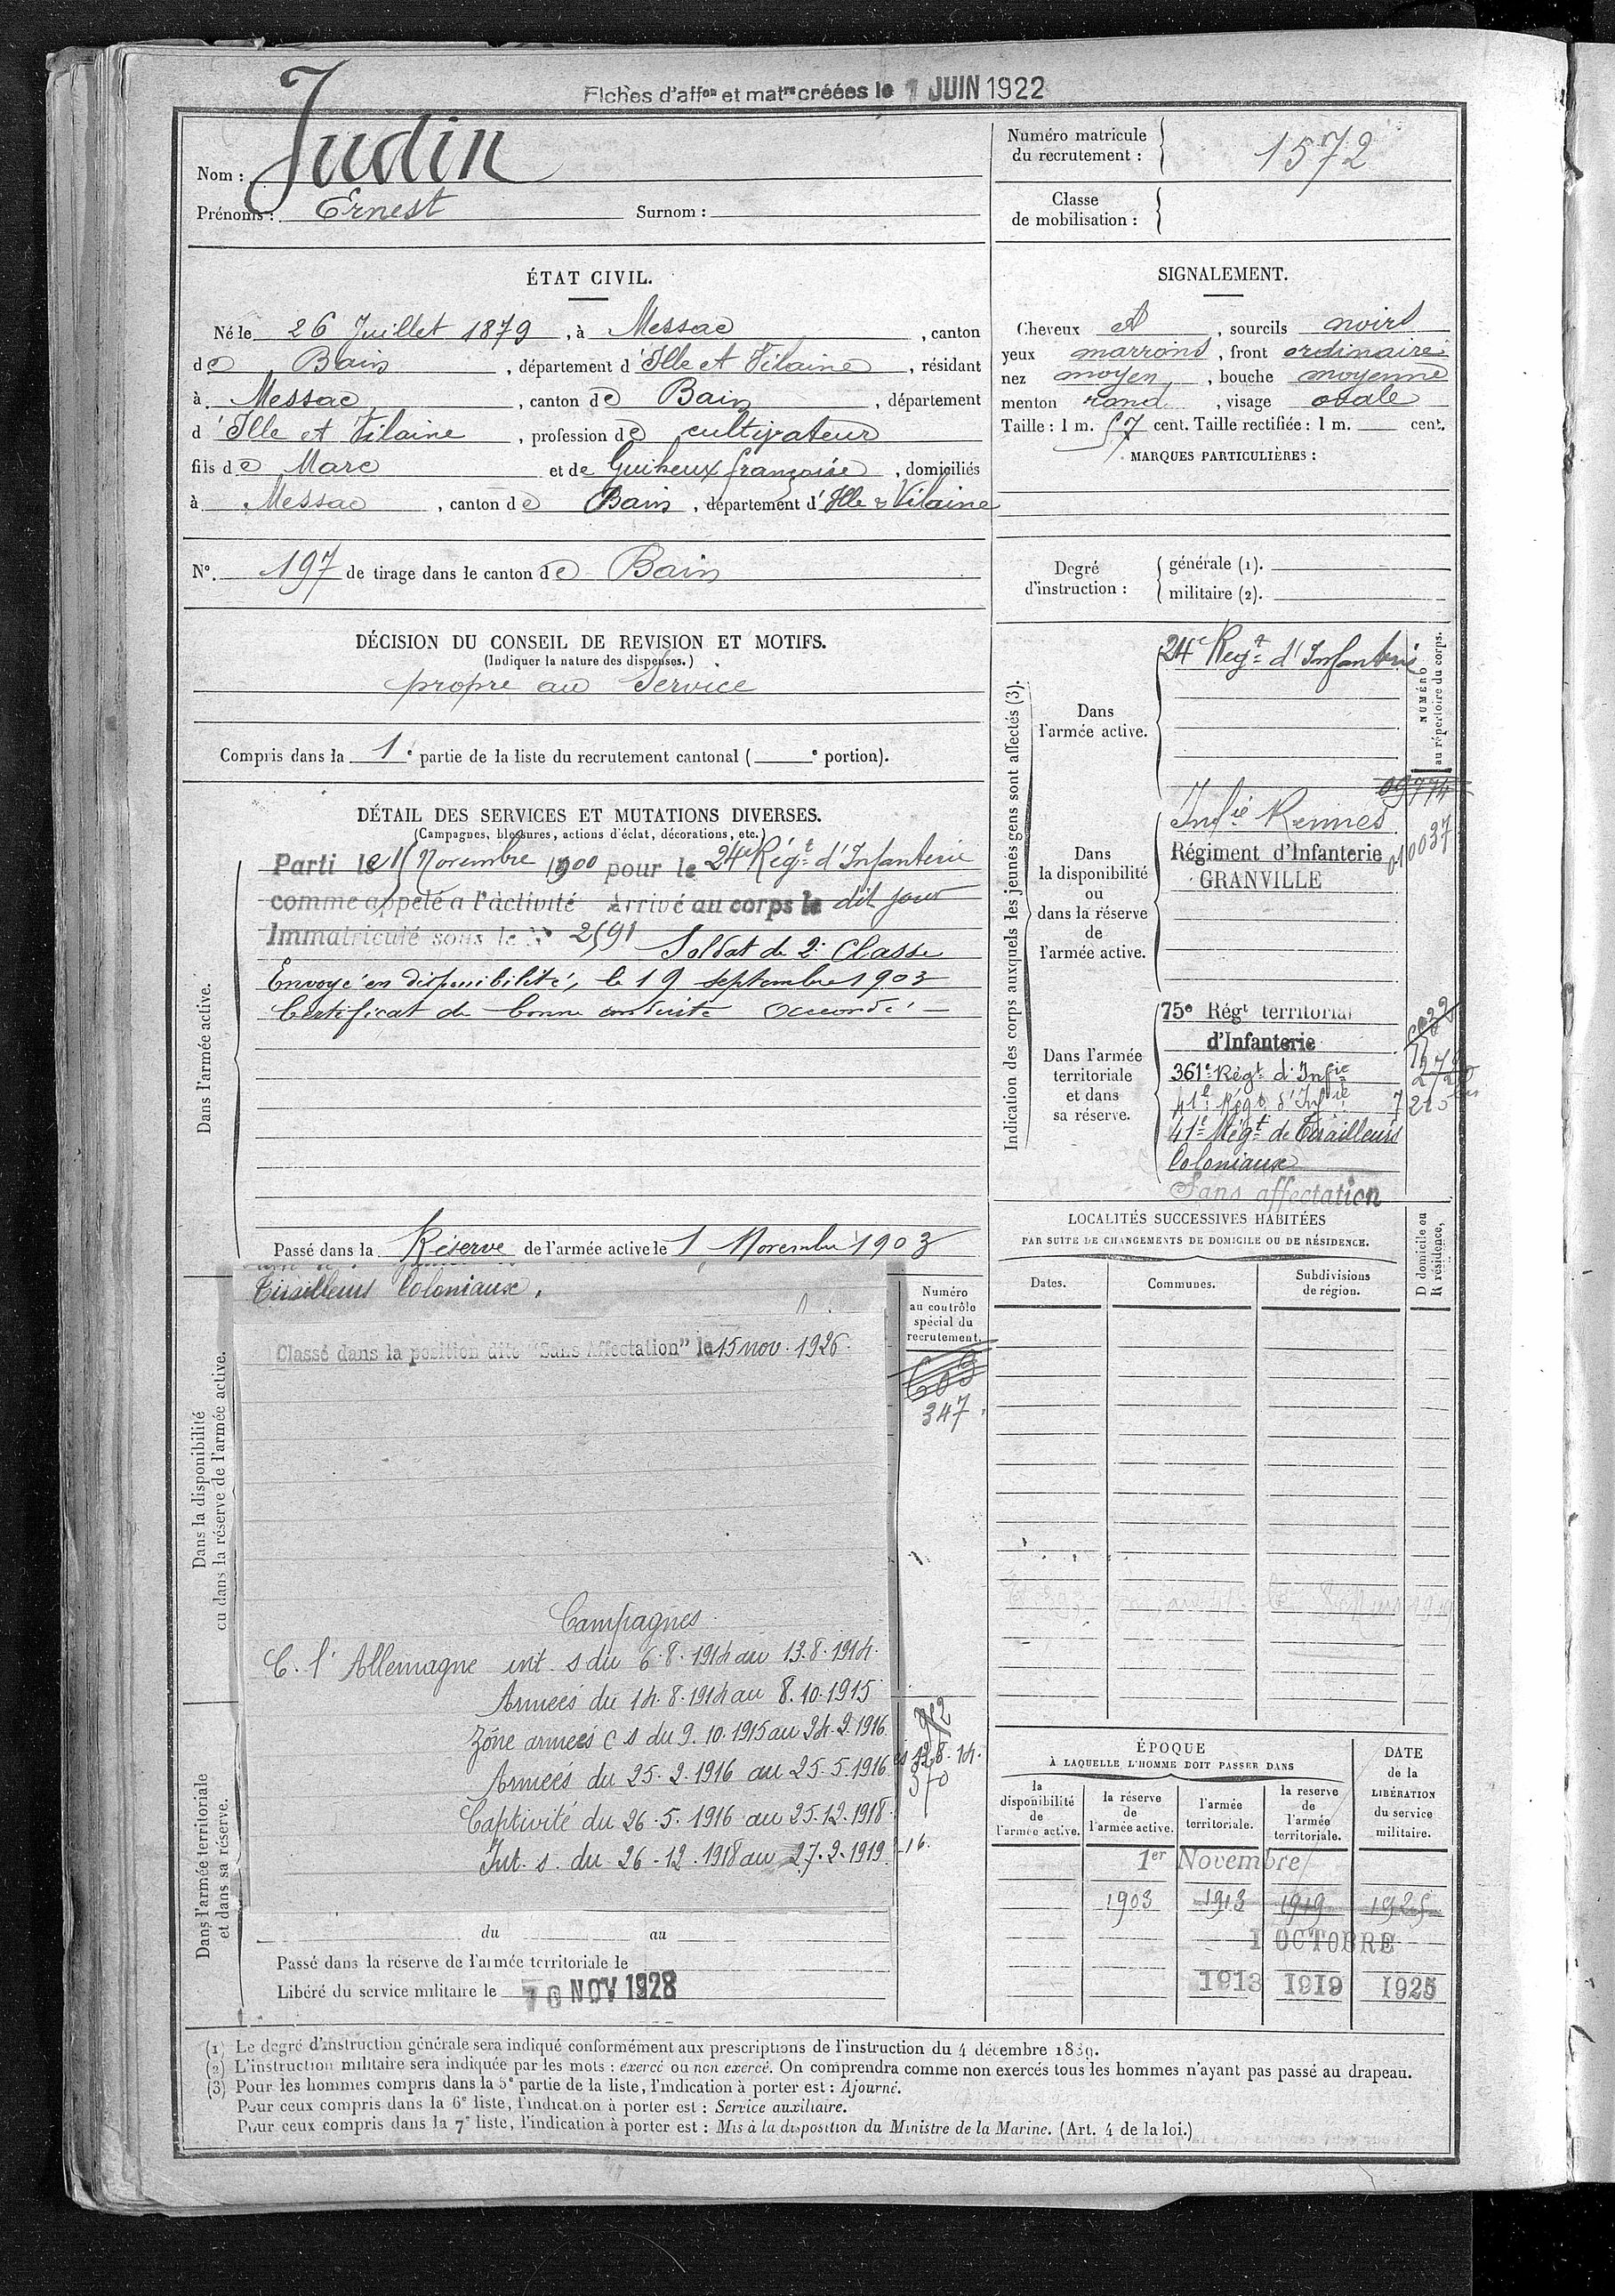 Fiches d'affon et matre créées le 1 JUIN 1922
Nom : Judin
Prénoms : Ernest Surnom :
Numéro matricule du recrutement : 1572
Classe de mobilisation :
ÉTAT CIVIL.
Né le 26 Juillet 1879, à Messac, canton
de Bain, département d'Ille et Vilaine, résidant
à Messac, canton de Bain, département
d'Ille et Vilaine, profession de cultivateur
fils de Marc et de Guiheux françoise, domiciliés
à Messac, canton de Bain, département d'Ille & Vilaine
N°. 197 de tirage dans le canton de Bain
SIGNALEMENT.
Cheveux et, sourcils noirs
yeux marrons, front ordinaire
nez moyen, bouche moyenne
menton rond, visage ovale
Taille : 1 m. 57 cent. Taille rectifiée : 1 m. cent.
MARQUES PARTICULIÈRES :
Degré d'instruction :
générale (1).
militaire (2).
DÉCISION DU CONSEIL DE REVISION ET MOTIFS.
(Indiquer la nature des dispenses.)
propre au Service
Compris dans la 1e partie de la liste du recrutement cantonal ( e portion).
DÉTAIL DES SERVICES ET MUTATIONS DIVERSES.
(Campagnes, blessures, actions d'éclat, décorations, etc.)
Dans l'armée active.
Parti le 15 Novembre 1900 pour le 24e Régt d'Infanterie
comme appelé a l'activité Arrivé au corps le dit jour
Immatriculé sous le N° 2591 Soldat de 2e Classe
Envoyé en disponibilité, le 19 septembre 1903
Certificat de bonne conduite Accordé
Passé dans la Réserve de l'armée active le 1 Novembre 1903
Dans la disponibilité
ou dans la réserve de l'armée active.
Tirailleurs Coloniaux.
Classé dans la position dite "Sans Affectation" le 15 nov. 1926.
Campagnes
C. l'Allemagne int. s du 6.8.1914 au 13.8.1914.
Armées du 14.8.1914 au 8.10.1915
Zône armées c s du 9.10.1915 au 24.2.1916
Armées du 25.2.1916 au 25.5.1916
Captivité du 26.5.1916 au 25.12.1918
Int. s. du 26.12.1918 au 27.2.1919
Numéro au contrôle spécial du recrutement.
603
347
Dans l'armée territoriale
et dans sa réserve.
du au
Passé dans la réserve de l'armée territoriale le
Libéré du service militaire le 10 NOV 1928
Indication des corps auxquels les jeunes gens sont affectés (3).
NUMÉRO au répertoire du corps.
Dans l'armée active.
24e Regt d'Infanterie
Dans la disponibilité ou dans la réserve de l'armée active.
09774
Infie Rennes
Régiment d'Infanterie 010037
GRANVILLE
Dans l'armée territoriale et dans sa réserve.
75e Régt territorial
d'Infanterie
361e Régt d'Infie
41e Régt d'Infie
41e Régt de Tirailleurs
Coloniaux
Sans affectation
LOCALITÉS SUCCESSIVES HABITÉES
PAR SUITE DE CHANGEMENTS DE DOMICILE OU DE RÉSIDENCE.
Dates. Communes. Subdivisions de région.
D domicile ou R résidence.
ÉPOQUE
À LAQUELLE L'HOMME DOIT PASSER DANS
la disponibilité de l'armée active.
la réserve de l'armée active.
l'armée territoriale.
la reserve de l'armée territoriale.
DATE de la LIBÉRATION du service militaire.
1er Novembre
1903 1913 1919 1925
1 OCTOBRE
1913 1919 1925
(1) Le degré d'instruction générale sera indiqué conformément aux prescriptions de l'instruction du 4 décembre 1889.
(2) L'instruction militaire sera indiquée par les mots : exercé ou non exercé. On comprendra comme non exercés tous les hommes n'ayant pas passé au drapeau.
(3) Pour les hommes compris dans la 5e partie de la liste, l'indication à porter est : Ajourné.
Pour ceux compris dans la 6e liste, l'indication à porter est : Service auxiliaire.
Pour ceux compris dans la 7e liste, l'indication à porter est : Mis à la disposition du Ministre de la Marine. (Art. 4 de la loi.)